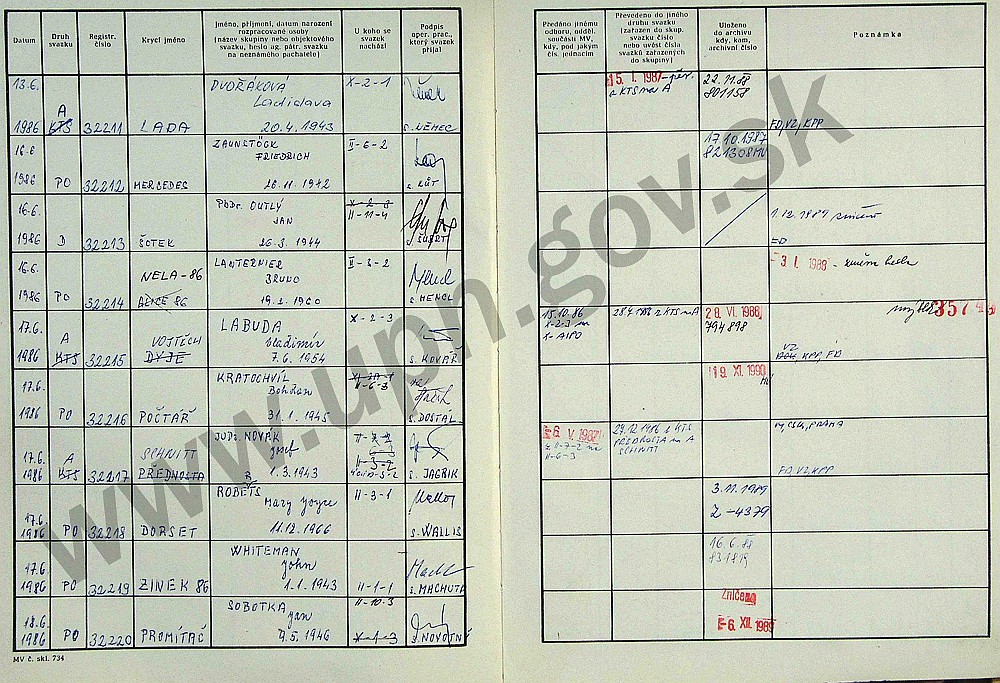 Datum
Druh svazku
Registr. číslo
Krycí jméno
Jméno, příjmení, datum narození
rozpracované osoby
(název skupiny nebo objektového
svazku, heslo ag. pátr. svazku
na neznámého pachatele)
U koho se
svazek
nachází
Podpis
oper. prac.,
který svazek
přijal
Předáno jinému
odboru, odděl.
součásti MV,
kdy, pod jakým
čís. jednacím
Převedeno do jiného
druhu svazku
(zařazen do skup.
svazku číslo
nebo uvést čísla
svazků zařazených
do skupiny)
Uloženo
do archivu
kdy, kam,
archivní číslo
Poznámka
13.6. DVOŘÁKOVÁ X-2-1 15. I. 1987 22.11.88
A Ladislava 801158
1986 KTS 32211 LADA 20.4.1943 s. NĚMEC FD, VZ, KPP
16.6 ZAUNSTÖCK II-6-2 17.10.1987
FRIEDRICH 821308MV
1986 PO 32212 MERCEDES 26.11.1942
16.6. PhDr. OUTLÝ X-2-3
JAN II-11-4 1.12.1989
1986 D 32213 ŠOTEK 26.3.1944
16.6. NELA-86 LANTERNIER II-3-2 -3. I. 1988
BRUNO
1986 PO 32214 ALICE 86 s. MENCL
17.6. LABUDA X-2-3 15.10.86 28. VI. 1988
A VOJTĚCH Vladimír X-2-3 794898
1986 KTS 32215 DYJE 7.6.1954 s. KOVÁŘ KPP, FD
17.6. KRATOCHVÍL 19. XI. 1990
Bohdan II-6-3
1986 PO 32216 POČTÁŘ 31.1.1945 s. DOSTÁL
JUDr. NOVÁK 6. V. 1987 29.12.1986 z KTS
17.6. A SCHNITT Josef PŘEDNOSTA na A
1986 KTS 32217 PŘEDNOSTA 1.3.1943 s. JAGRIK SCHNITT FD, VZ, KPP
ROBETS II-3-1 3.11.1989
17.6. Mary Joyce Z-4379
1986 PO 32218 DORSET 11.12.1966 s. WALLIS
WHITEMAN 16.6.88
17.6. John
1986 PO 32219 ZINEK 86 1.1.1943 II-1-1 s. MACHUTA
SOBOTKA II-10-3 Zničeno
18.6. Jan
1986 PO 32220 PROMÍTAČ 9.5.1946 X-1-3 s. NOVOTNÝ -6. XII. 1989
MV č. skl. 734
www.upn.gov.sk